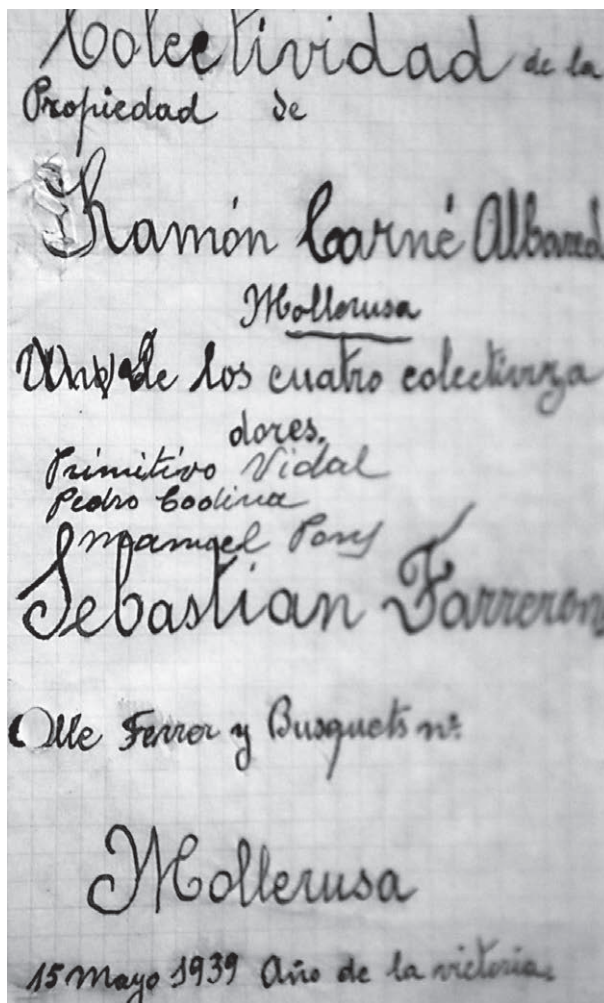 Colectividad de la
Propiedad de
Ramón Carné Albared
Mollerusa
Uno de los cuatro colectiviza
dores.
Primitivo Vidal
Pedro Codina
Manuel Pons
Sebastian Farrerons
Calle Ferrer y Busquets nº.
Mollerusa
15 Mayo 1939 Año de la victoria.